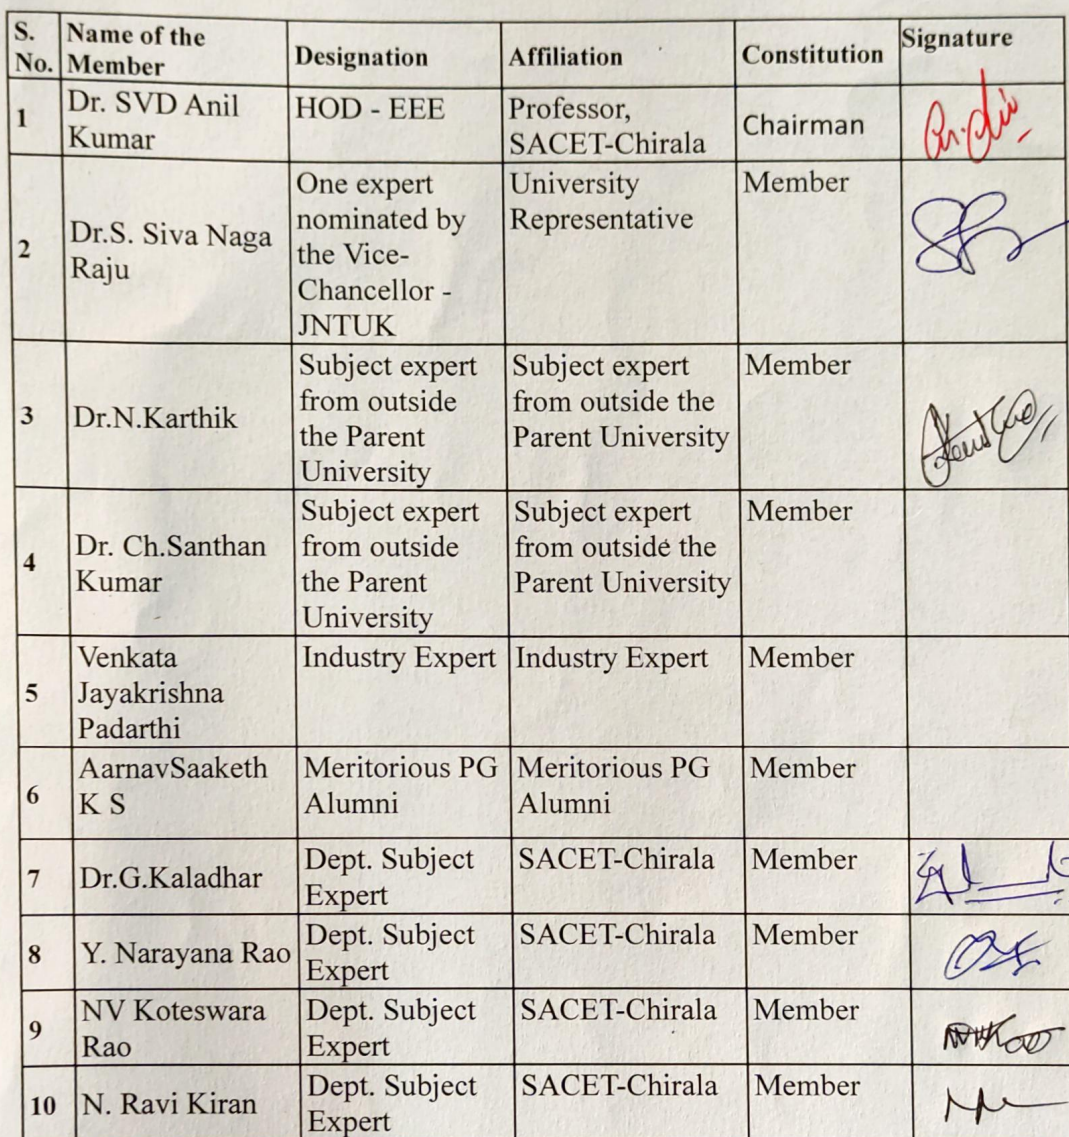 S. No. Name of the Member Designation Affiliation Constitution Signature
1 Dr. SVD Anil Kumar HOD - EEE Professor, SACET-Chirala Chairman
2 Dr.S. Siva Naga Raju One expert nominated by the Vice-Chancellor - JNTUK University Representative Member
3 Dr.N.Karthik Subject expert from outside the Parent University Subject expert from outside the Parent University Member
4 Dr. Ch.Santhan Kumar Subject expert from outside the Parent University Subject expert from outside the Parent University Member
5 Venkata Jayakrishna Padarthi Industry Expert Industry Expert Member
6 AarnavSaaketh K S Meritorious PG Alumni Meritorious PG Alumni Member
7 Dr.G.Kaladhar Dept. Subject Expert SACET-Chirala Member
8 Y. Narayana Rao Dept. Subject Expert SACET-Chirala Member
9 NV Koteswara Rao Dept. Subject Expert SACET-Chirala Member
10 N. Ravi Kiran Dept. Subject Expert SACET-Chirala Member